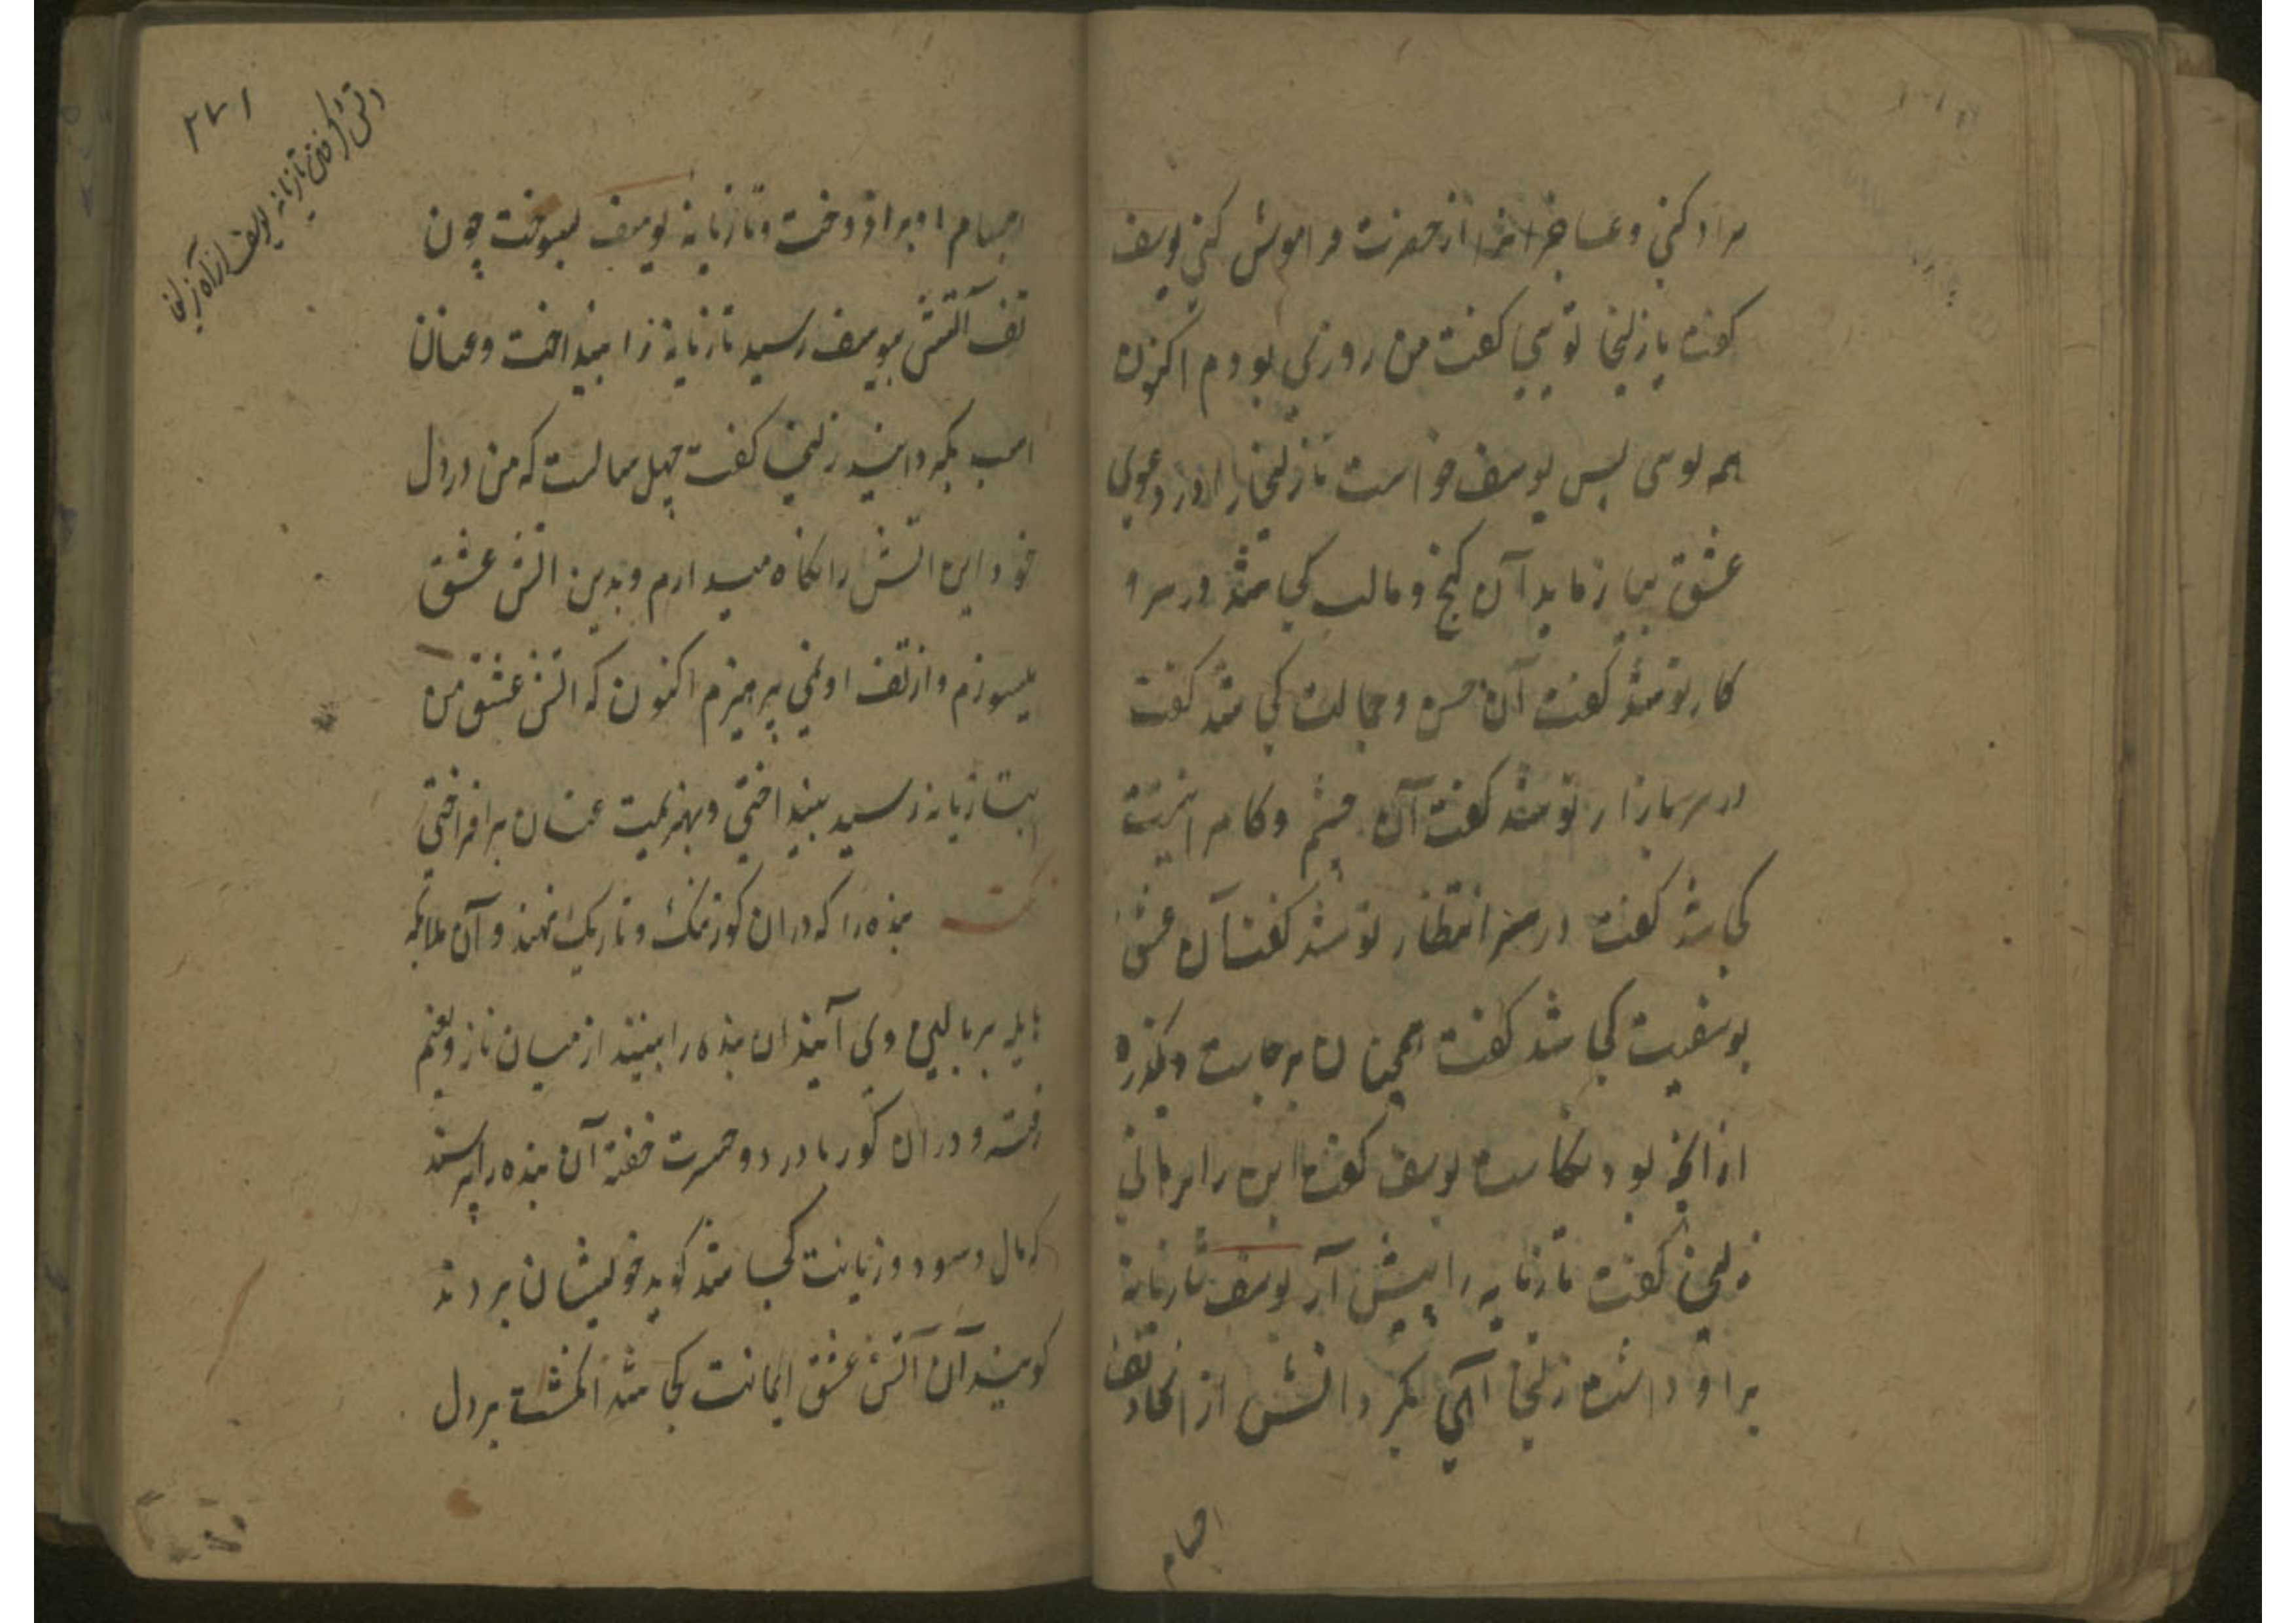 مراد کنی و عاجز را از حضرت فراموش کنی یوسف
گفت یا زلیخا تویی گفت من روزی بودم اکنون
همه توی پس یوسف خواست تا زلیخا را در دعوی
عشق بیازماید آن گنج و مالت کجا شد در سر و
کار تو شد گفت آن حسن و جمالت کجا شد گفت
در سر بازار تو شد گفت آن چشم و کامرانیت
کجا شد گفت در سر انتظار تو شد گفت آن عشق
یوسفیت کجا شد گفت همچنان برجاست و بگذره
از آنچه بود نکاست یوسف گفت این را برهانی
زلیخا گفت تازیانه را پیش آر یوسف تازیانه
برو داشت زلیخا آهی بکرد آتش از اتحاد تف
اجسام
۲۷۱
آتش گرفتن تازیانه یوسف از آه زلیخا
اجسام او برافروخت و تازیانه یوسف بسوخت چون
تف آتش بیوسف رسید تازیانه را بینداخت و عنان
اسب بگردانید زلیخا گفت چهل سالست که من در دل
خود این اتش را نگاه میدارم و بدین اتش عشق
میسوزم و از تف او نمی پرهیزم اکنون که اتش عشق من
بتازیانه رسید بینداختی و بهزیمت عنان برافراختی
بنده را که در ان گور تنک و تاریک نهند و آن ملائکه
بر بالین وی آیند ان بنده را بینند از میان ناز و نعیم
رفته و در ان گور با درد و حسرت خفته آن بنده را پرسند
که مال و سود و زیانت کجا شد گوید خویشان بردند
گویند آن آتش عشق ایمانت کجا شد انگشت بر دل